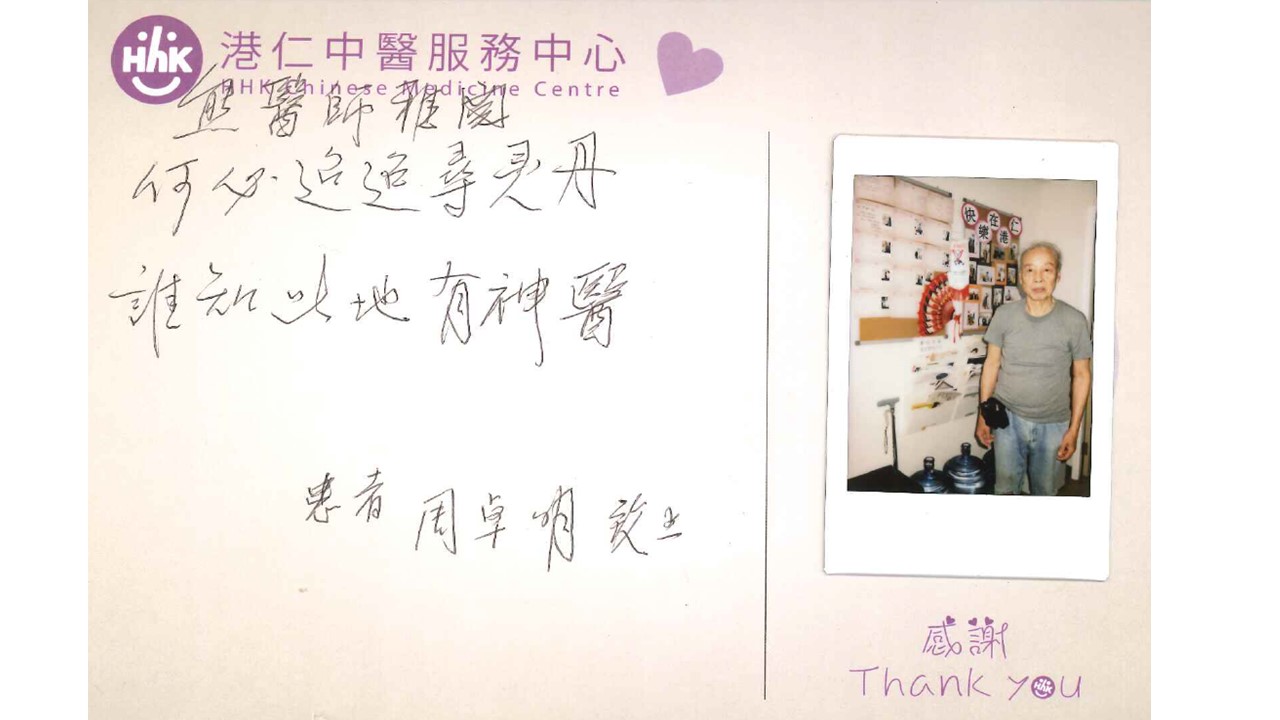 HHK 港仁中醫服務中心
HHK Chinese Medicine Centre
熊醫師雅閱
何必迢迢尋灵丹
誰知此地有神醫
患者 周卓明 致上
快樂在港仁
感謝
Thank you
HHK